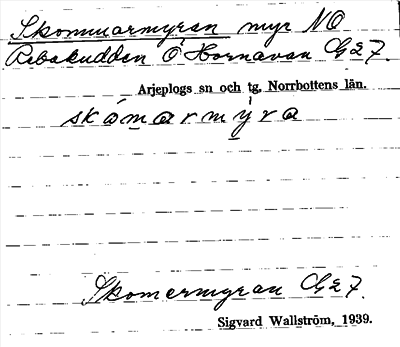 Skommarmyran myr NO
Rebakudden Ö Hornavan G27.
Arjeplogs sn och tg, Norrbottens län.
skómarmỳra
Skomermyran G27.
Sigvard Wallström, 1939.